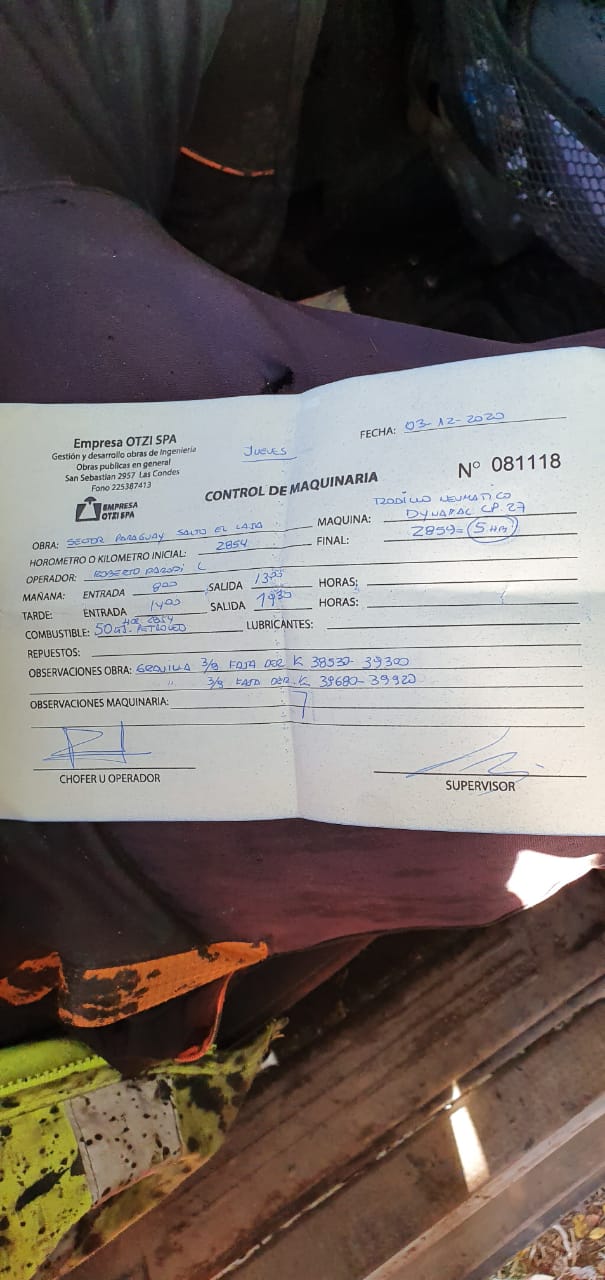 Empresa OTZI SPA
Gestión y desarrollo obras de Ingenieria
Obras publicas en general
San Sebastian 2957 Las Condes
Fono 225387413
EMPRESA
OTZI SPA
JUEVES
FECHA: 03-12-2020
N° 081118
CONTROL DE MAQUINARIA
OBRA: SECTOR PARAGUAY SALTO EL LAJA
MAQUINA: RODILLO NEUMATICO
DYNAPAC CP.27
HOROMETRO O KILOMETRO INICIAL: 2854
FINAL: 2859= 5 HRS
OPERADOR: ROBERTO PARODI L
MAÑANA: ENTRADA 800 SALIDA 1300 HORAS:
TARDE: ENTRADA 1400 SALIDA 1930 HORAS:
COMBUSTIBLE: 50 LTS. PETROLEO HOR 2854 LUBRICANTES:
REPUESTOS:
OBSERVACIONES OBRA: GRAVILLA 3/8 FAJA DER K 38530-39300
" 3/8 FAJA DER. K 39680-39920
OBSERVACIONES MAQUINARIA:
CHOFER U OPERADOR
SUPERVISOR